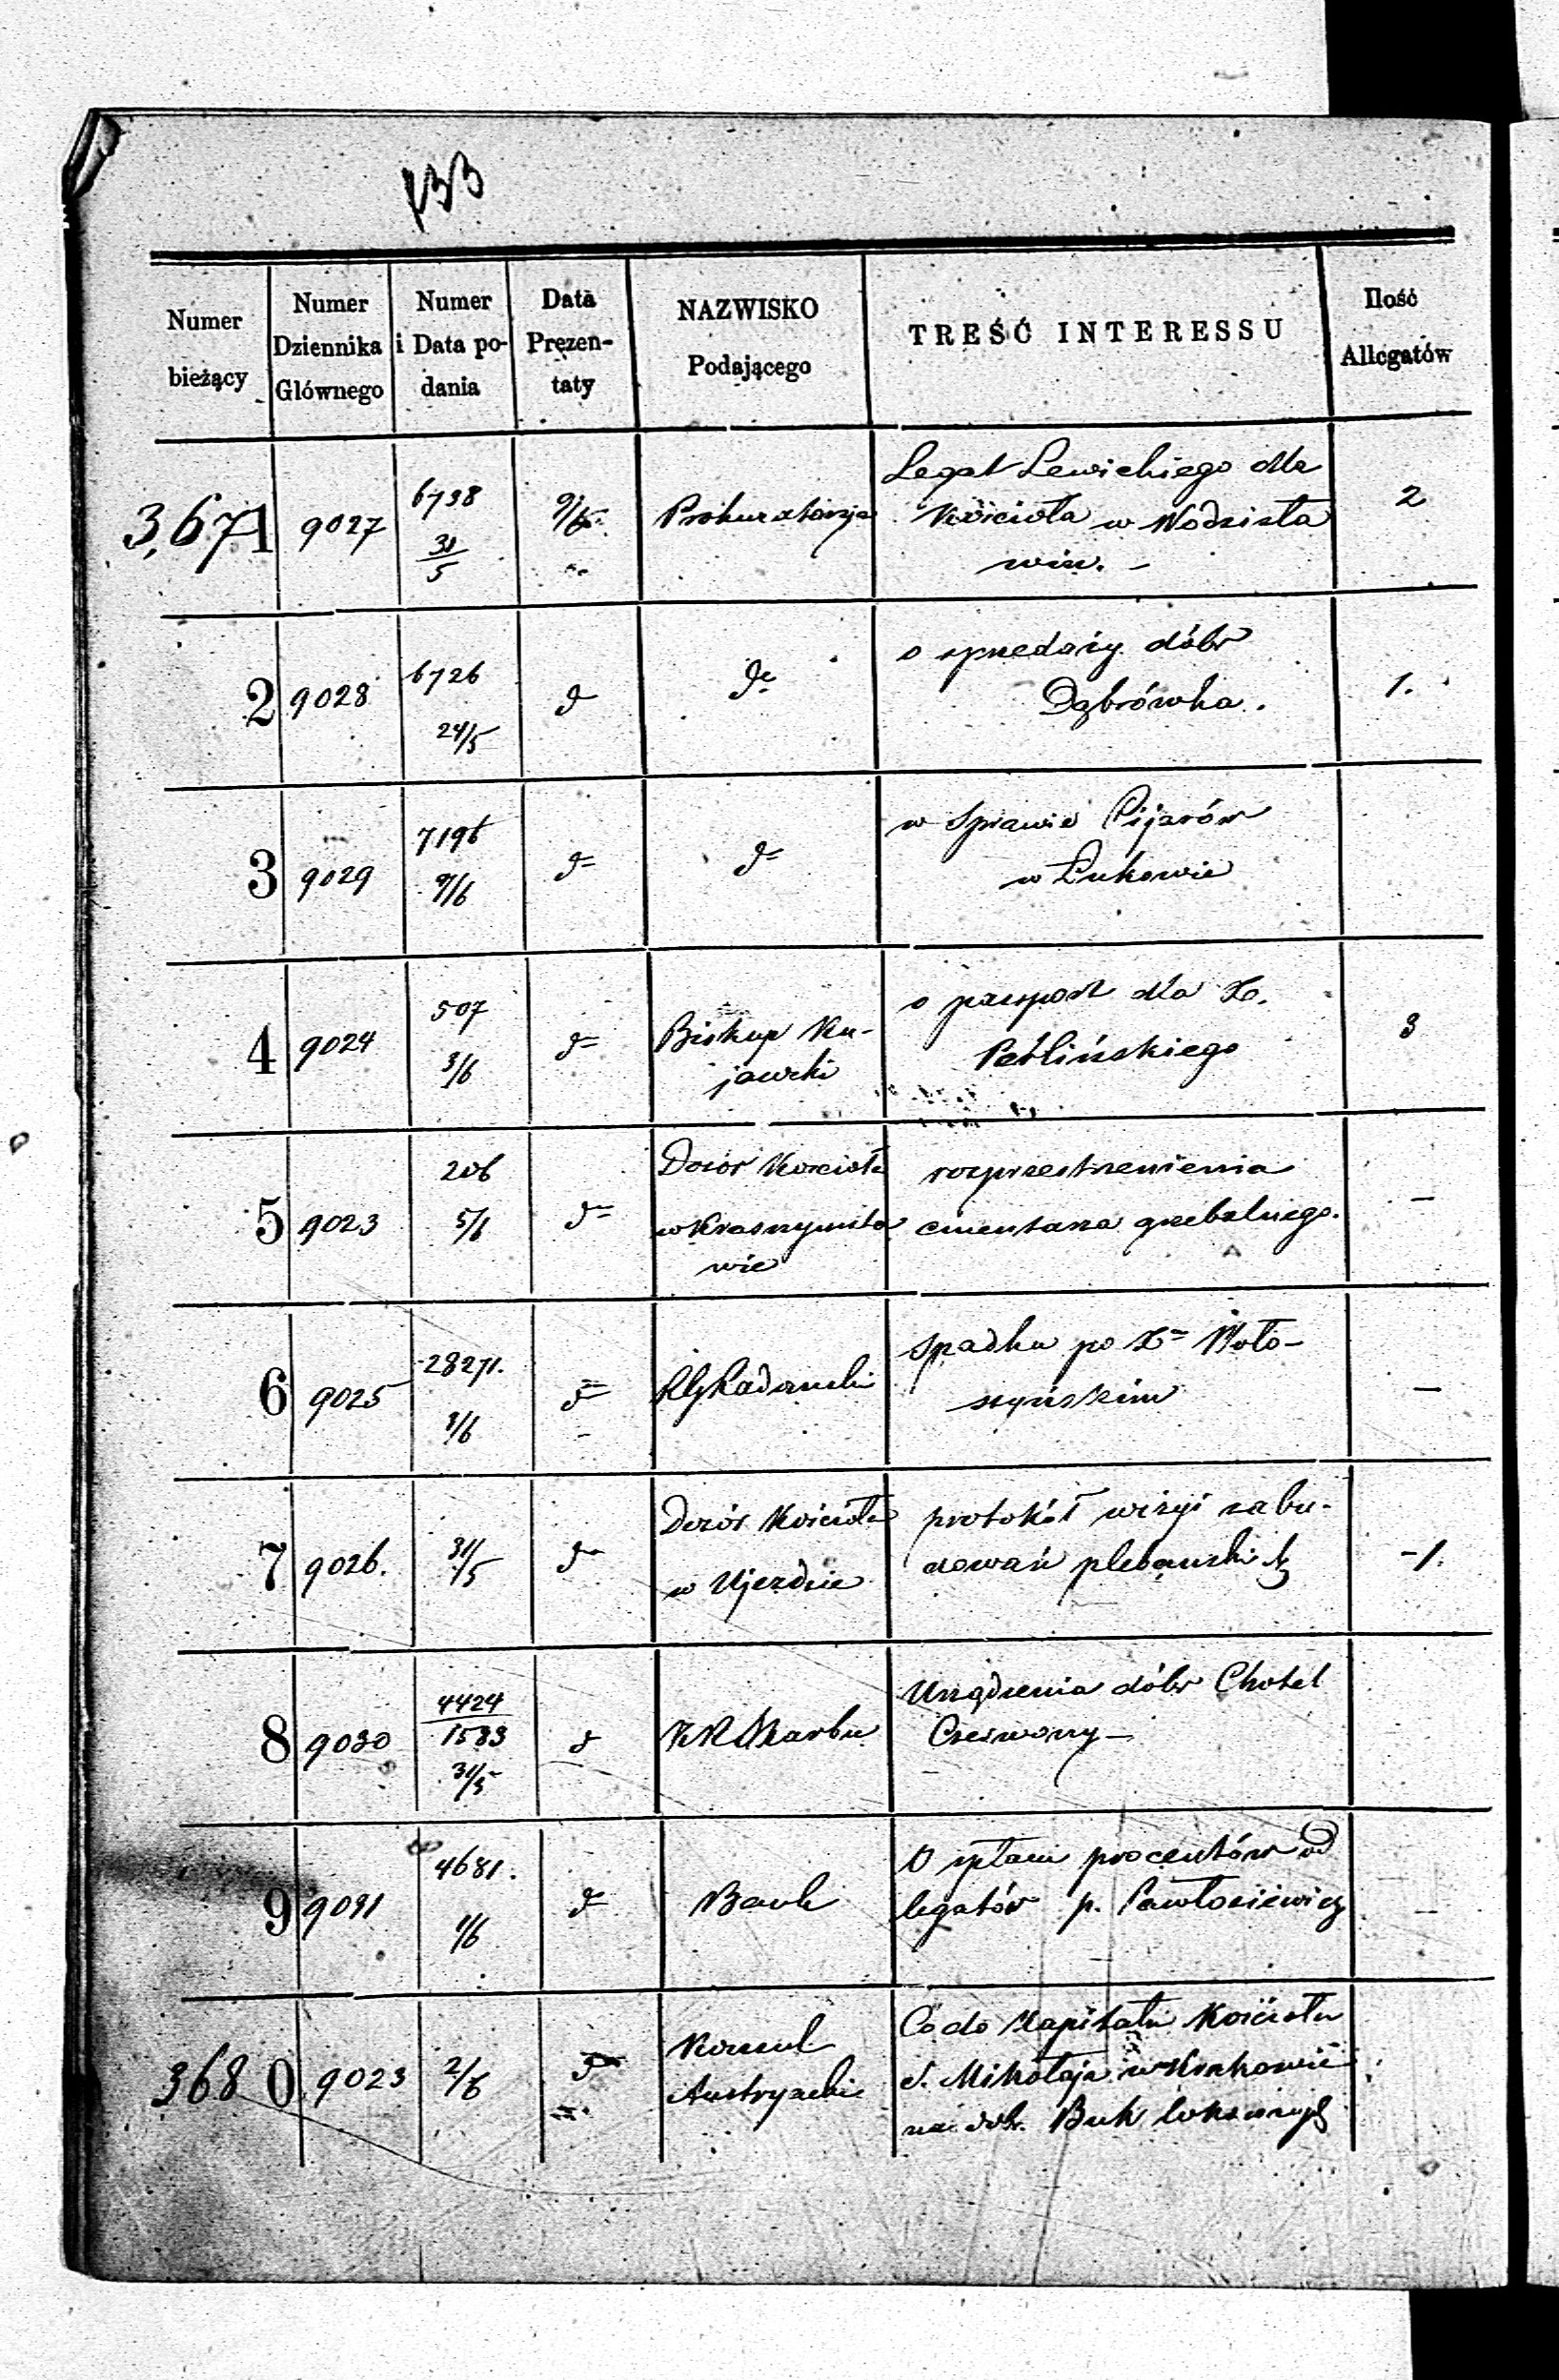 133
Numer bieżący | Numer Dziennika Głównego | Numer i Data podania | Data Prezentaty | NAZWISKO Podającego | TREŚĆ INTERESSU | Ilość Allegatów
3,671 | 9027 | 6738 31/5 | 9/6 | Prokuratorja | Legat Lewickiego dla Kościoła w Wodzisławiu. – | 2
2 | 9028 | 6726 24/5 | d | do | o sprzedaży dóbr Dąbrówka. | 1.
3 | 9029 | 7196 9/6 | d= | d= | w sprawie Pijarów w Łukowie
4 | 9024 | 507 3/6 | d= | Biskup Kujawski | o paszport dla X. | 3
5 | 9023 | 206 5/6 | d= | Dozór Kościoła w Krasnymstawie | rozprzestrzenienia cmentarza grzebalnego. | –
6 | 9025 | 28271. 3/6 | d= | RG Radomski | spadku po X= Wołoszyńskim | –
7 | 9026. | 31/5 | d= | Dozór Kościoła w Ujezdzie | protokół wizyi zabudowań plebańskich | -1.
8 | 9030 | 4424/1583 31/5 | d | KR Skarbu | Urządzenia dóbr Chotel Czerwony –
9 | 9031 | 4681. 1/6 | d= | Bank | O spłacie procentów od legatów p. | –
3680 | 9023 | 2/6 | d= | Konsul Austryacki | Co do Kapitału Kościoła S. Mikołaja w Krakowie na dobr. Buk